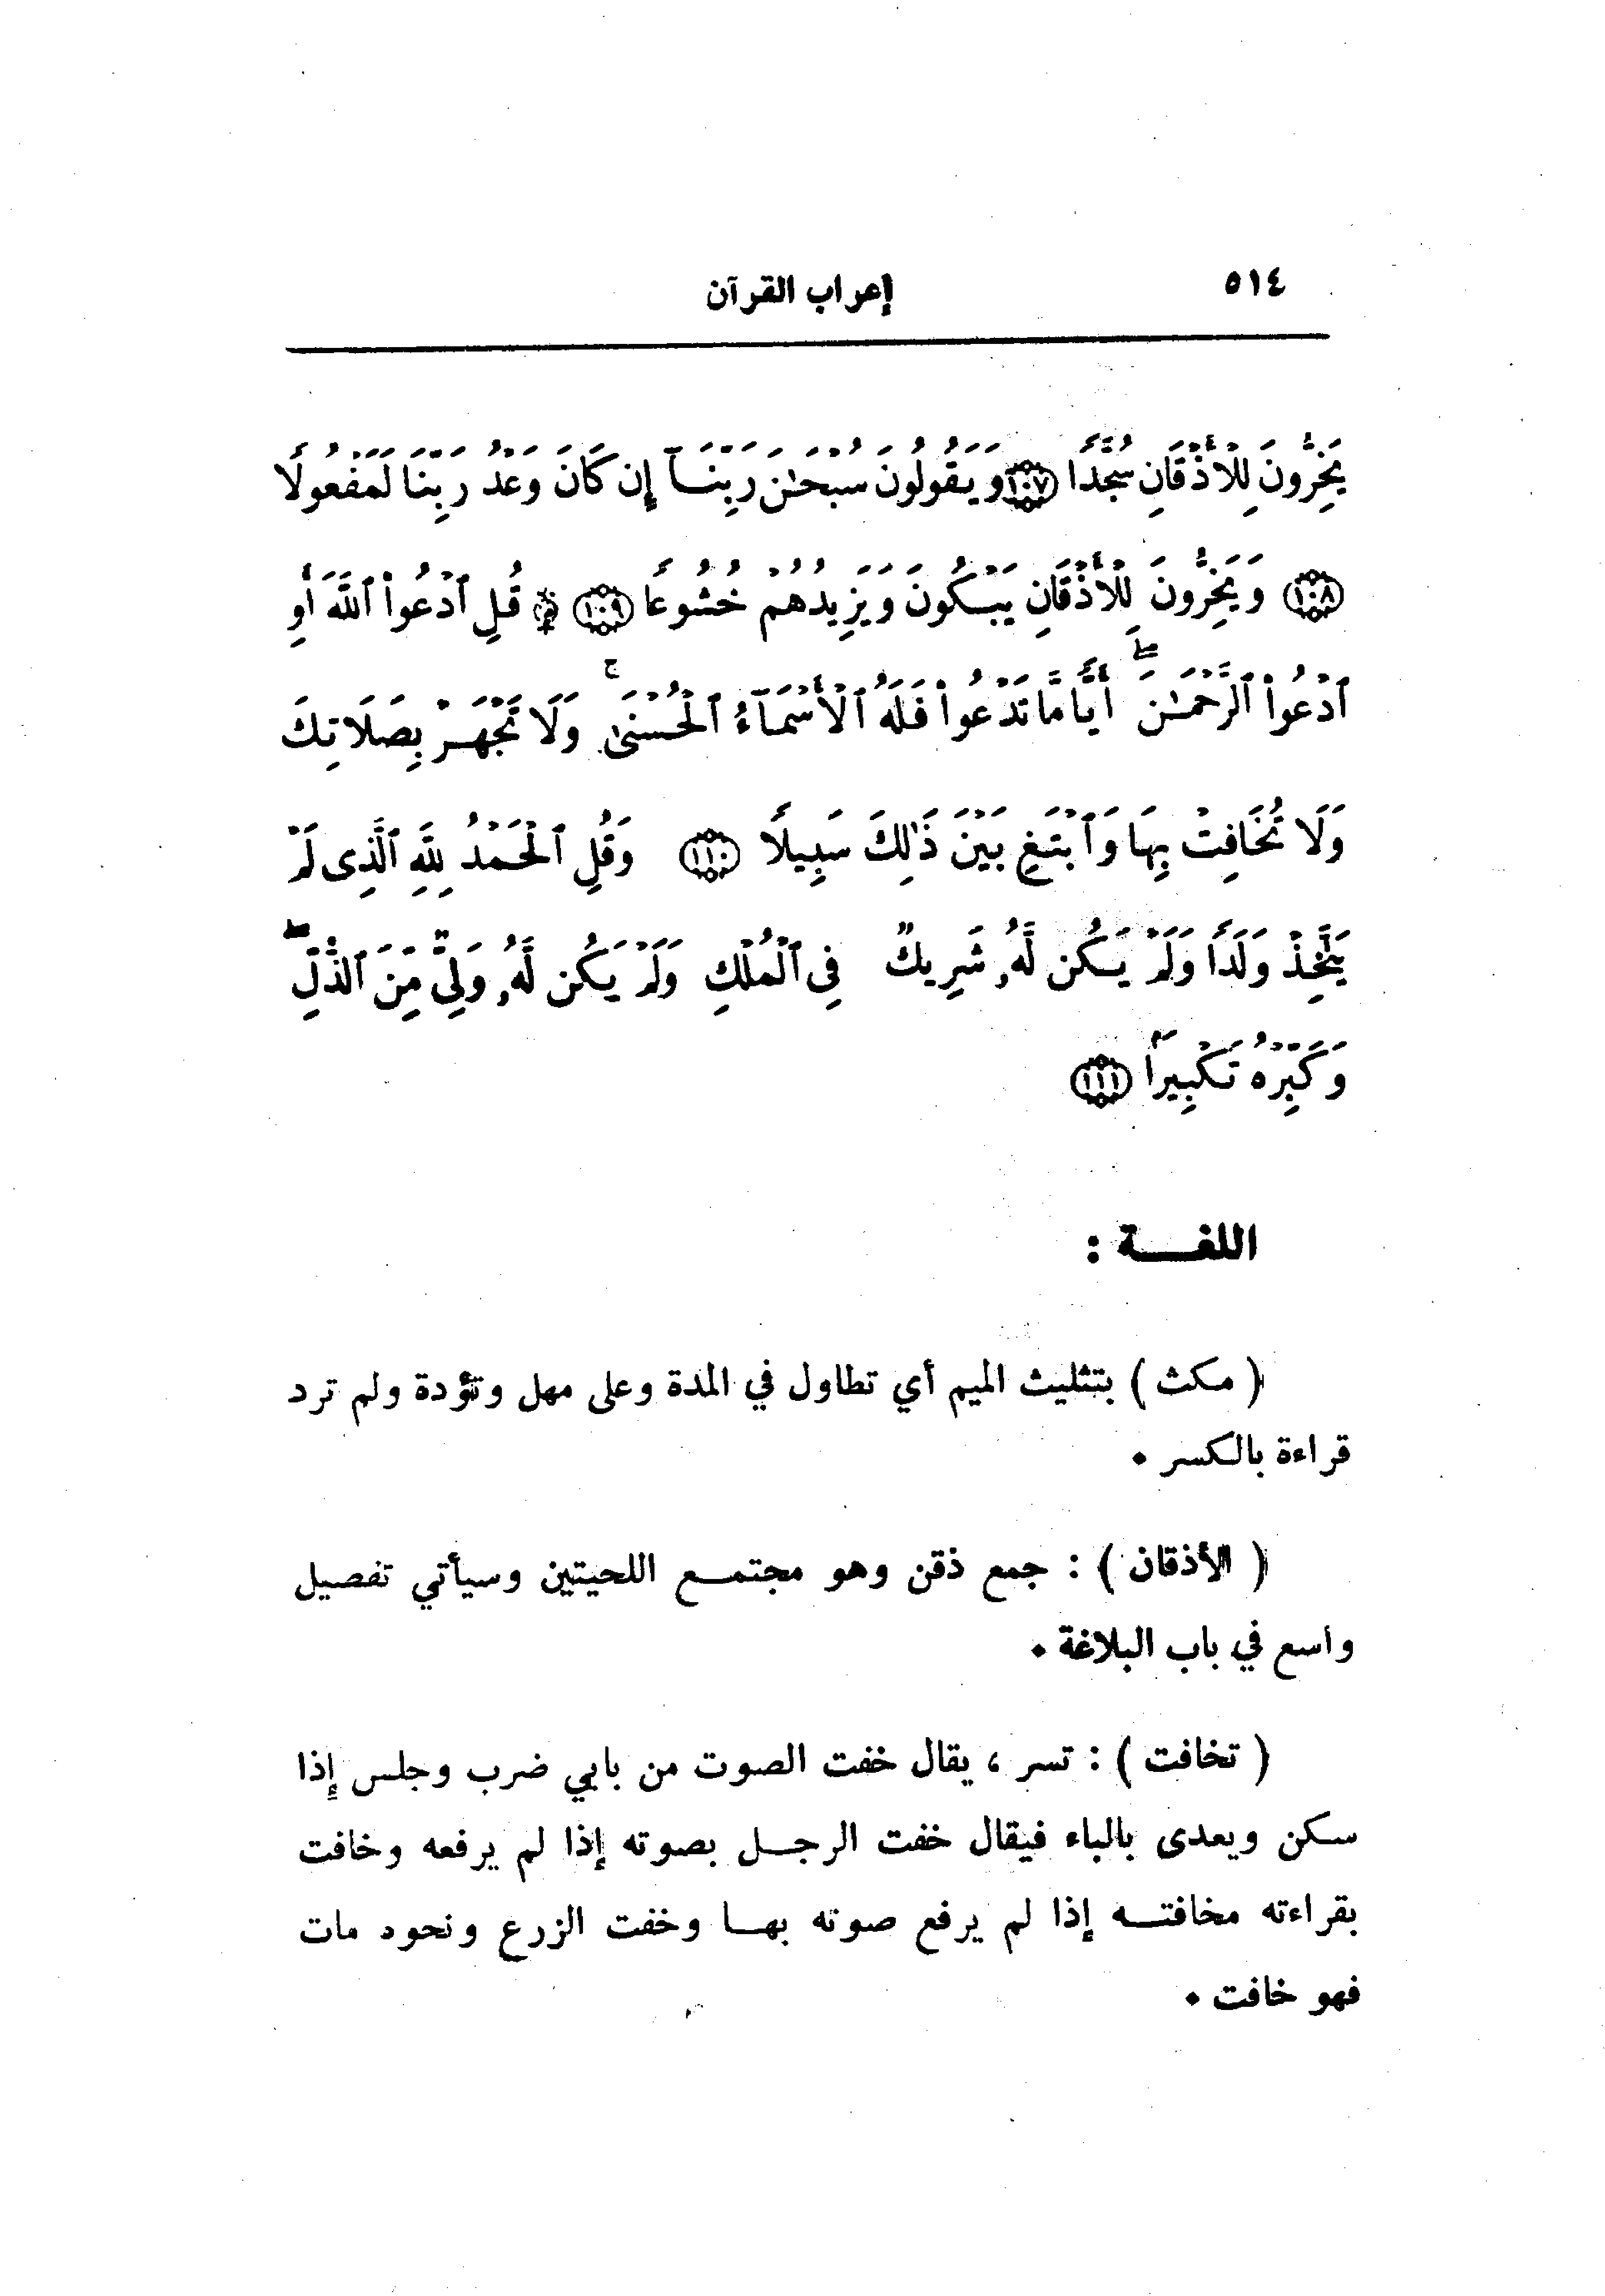 ٥١٤ إعراب القرآن
يَخِرُّونَ لِلْأَذْقَانِ سُجَّدًا ﴿١٠٧﴾ وَيَقُولُونَ سُبْحَٰنَ رَبِّنَآ إِن كَانَ وَعْدُ رَبِّنَا لَمَفْعُولًا
﴿١٠٨﴾ وَيَخِرُّونَ لِلْأَذْقَانِ يَبْكُونَ وَيَزِيدُهُمْ خُشُوعًا ﴿١٠٩﴾ * قُلِ ٱدْعُوا۟ ٱللَّهَ أَوِ
ٱدْعُوا۟ ٱلرَّحْمَٰنَ ۖ أَيًّا مَّا تَدْعُوا۟ فَلَهُ ٱلْأَسْمَآءُ ٱلْحُسْنَىٰ ۚ وَلَا تَجْهَرْ بِصَلَاتِكَ
وَلَا تُخَافِتْ بِهَا وَٱبْتَغِ بَيْنَ ذَٰلِكَ سَبِيلًا ﴿١١٠﴾ وَقُلِ ٱلْحَمْدُ لِلَّهِ ٱلَّذِى لَمْ
يَتَّخِذْ وَلَدًا وَلَمْ يَكُن لَّهُۥ شَرِيكٌ فِى ٱلْمُلْكِ وَلَمْ يَكُن لَّهُۥ وَلِىٌّ مِّنَ ٱلذُّلِّ ۖ
وَكَبِّرْهُ تَكْبِيرًۢا ﴿١١١﴾
اللغـــة :
( مكث ) بتثليث الميم أي تطاول في المدة وعلى مهل وتؤدة ولم ترد
قراءة بالكسر ٠
( الأذقان ) : جمع ذقن وهو مجتمـــع اللحيتين وسيأتي تفصيل
واسع في باب البلاغة ٠
( تخافت ) : تسر ، يقال خفت الصوت من بابي ضرب وجلس إذا
سكن ويعدى بالباء فيقال خفت الرجـــل بصوته إذا لم يرفعه وخافت
بقراءته مخافتـــه إذا لم يرفع صوته بهـــا وخفت الزرع ونحود مات
فهو خافت ٠